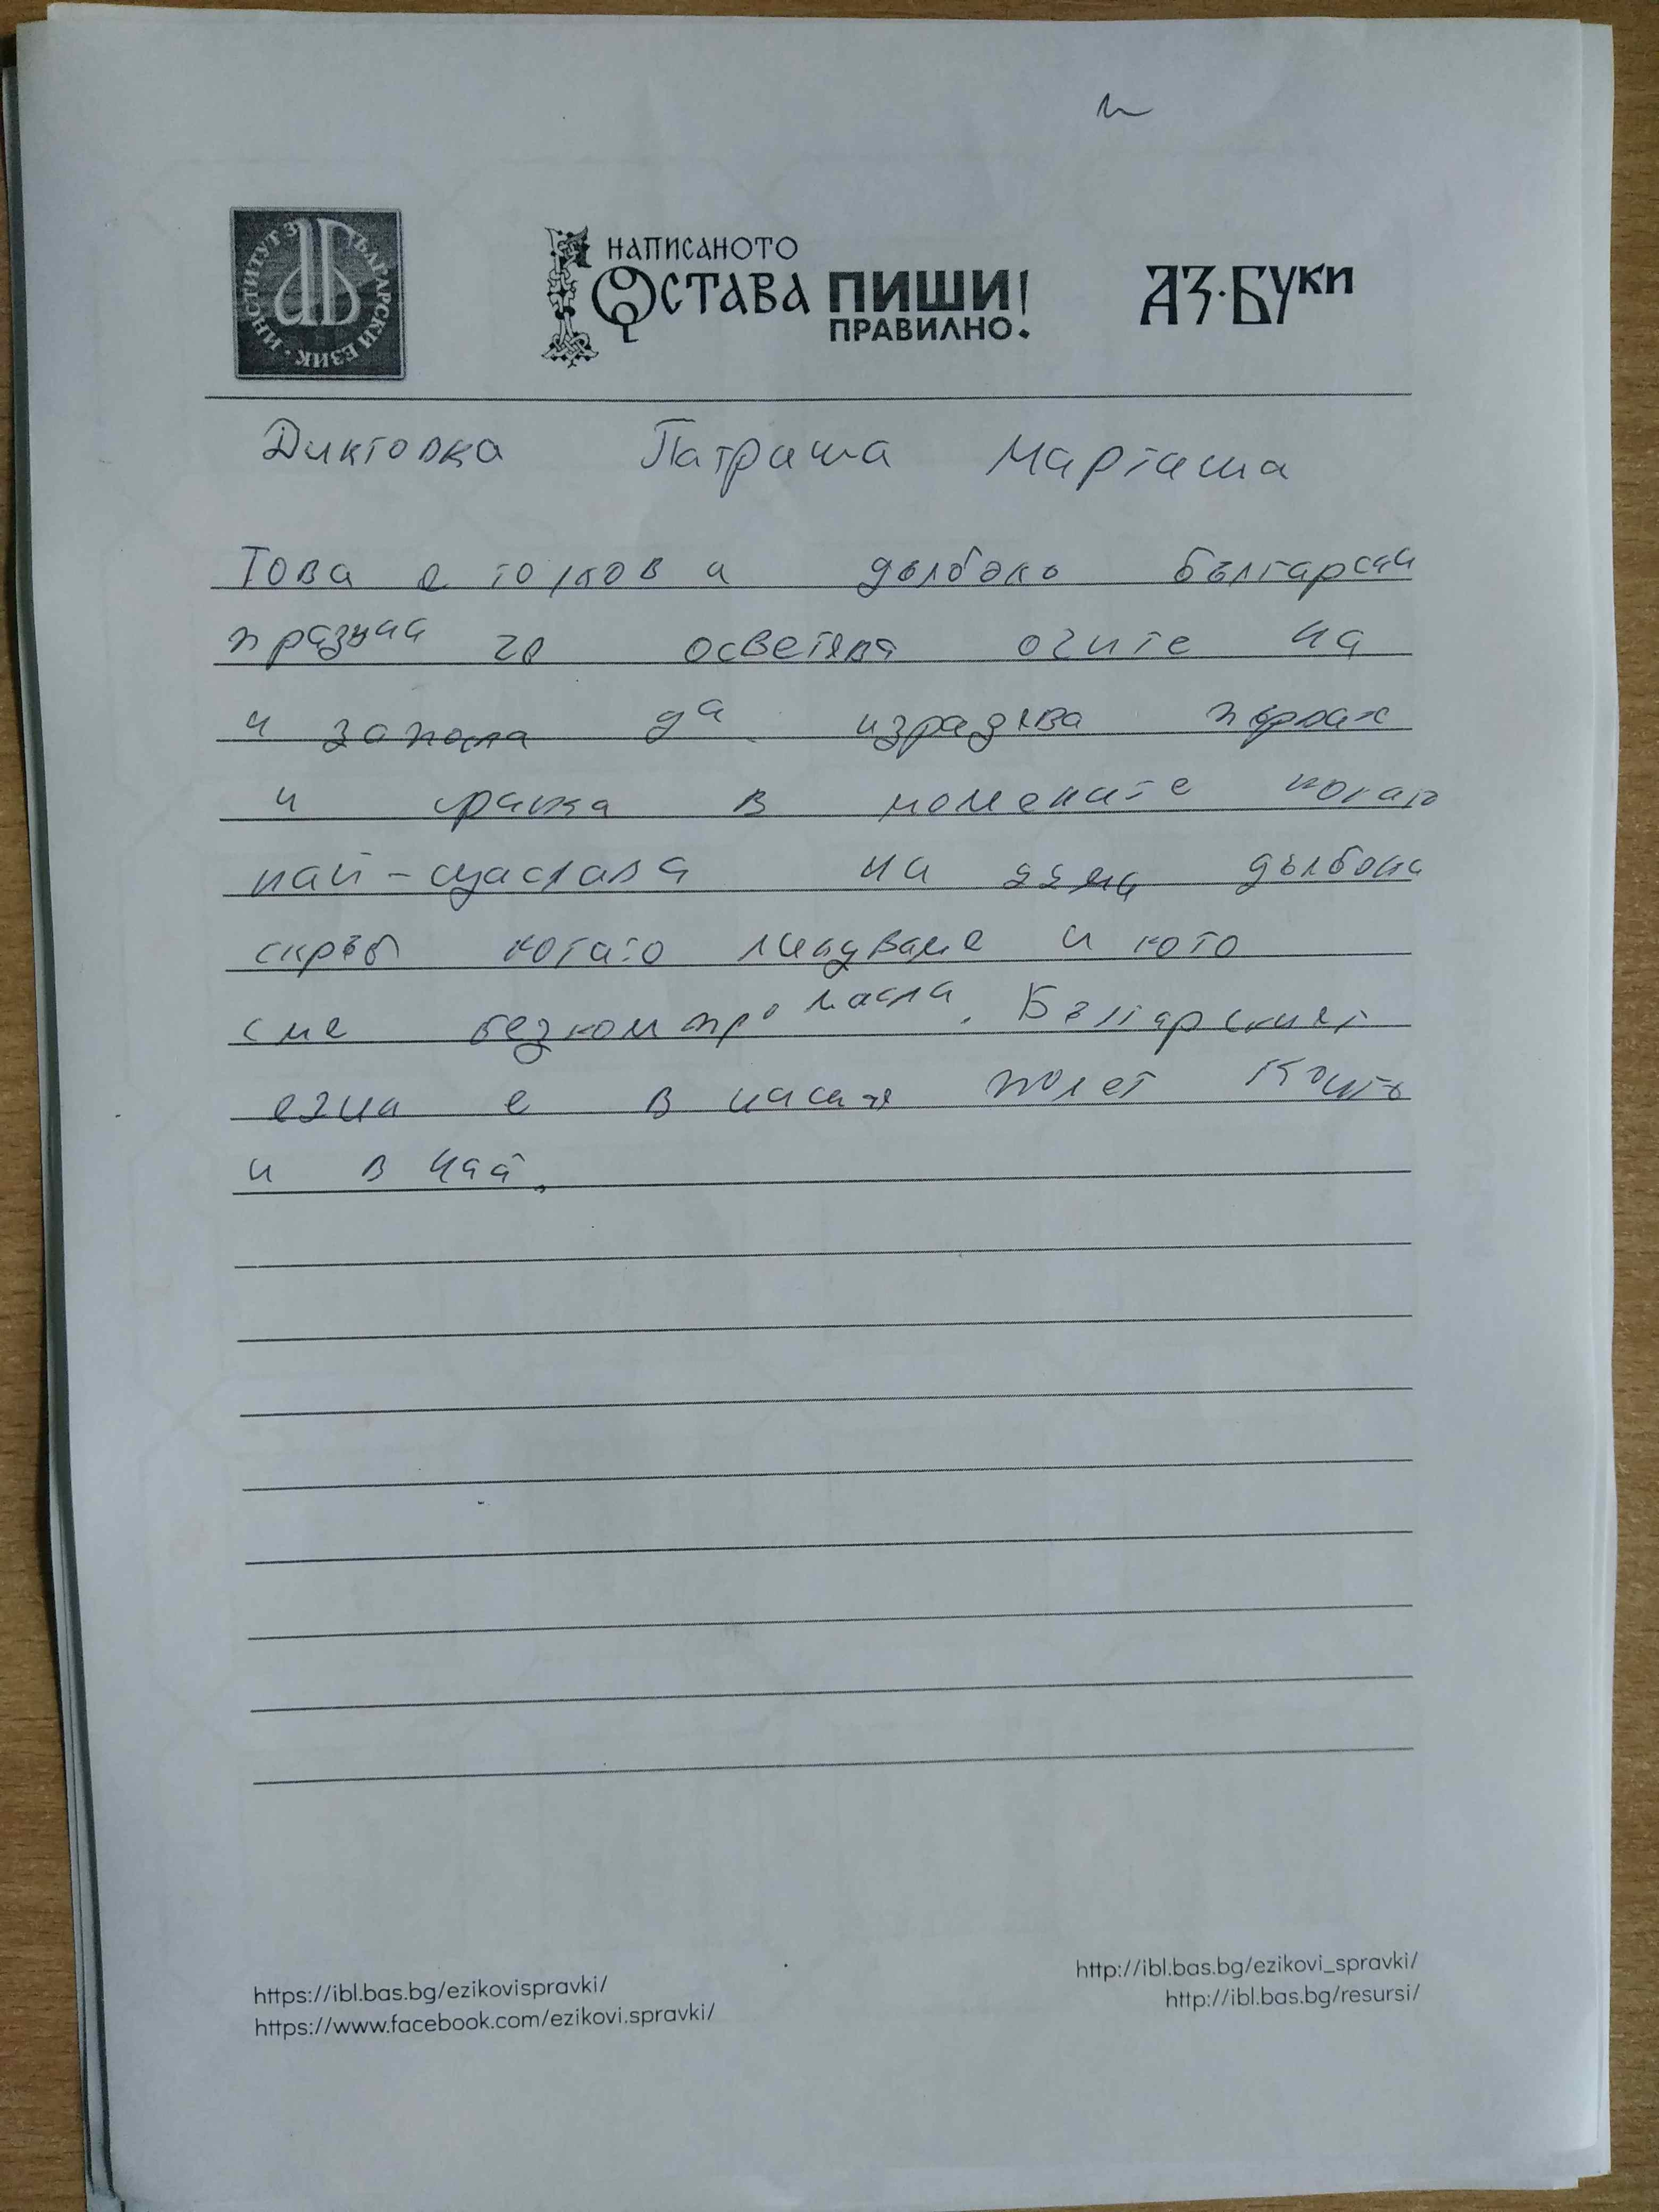 ИНСТИТУТ ЗА БЪЛГАРСКИ ЕЗИК
НАПИСАНОТО
ОСТАВА ПИШИ!
ПРАВИЛНО.
АЗ·БУКИ
Диктовка Патраша Марташа
Това е толкова дълбоко български
празник че осветява очите на
и да изрядява
и в моментите когато
най-щастлива на дълбока
скръб когато ликуваме и кото
сме безкомпромасла. Българският
езика е в насия полет Който
и в чай.
https://ibl.bas.bg/ezikovispravki/
https://www.facebook.com/ezikovi.spravki/
http://ibl.bas.bg/ezikovi_spravki/
http://ibl.bas.bg/resursi/